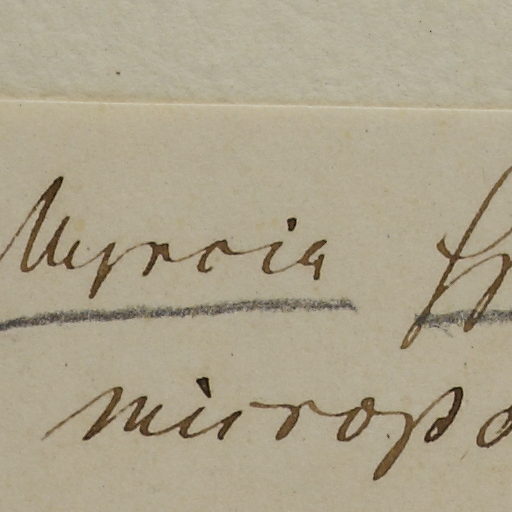 Myrcia
micropo